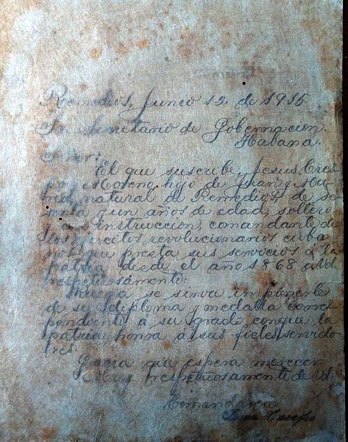 Remedios, Junio 12 de 1915
Sr. Secretario de Gobernacion
Habana.
Señor:
El que suscribe, Jesus Cres
po y Moreno, hijo de Juan y Ma
natural de Remedios de se
senta y un años de edad, soltero
instruccion, comandante de
los ejercitos revolucionarios cuba
nos que presta sus servicios a la
patria desde el año 1868 a Ud
respetuosamente.
Ruega se sirva
diploma y medalla corres
pondiente á su grado, conque la
patria honra á sus fieles servido
res.
Gracia que espera merecer
Muy respetuosamente de Ud.
Comandante
Crespo